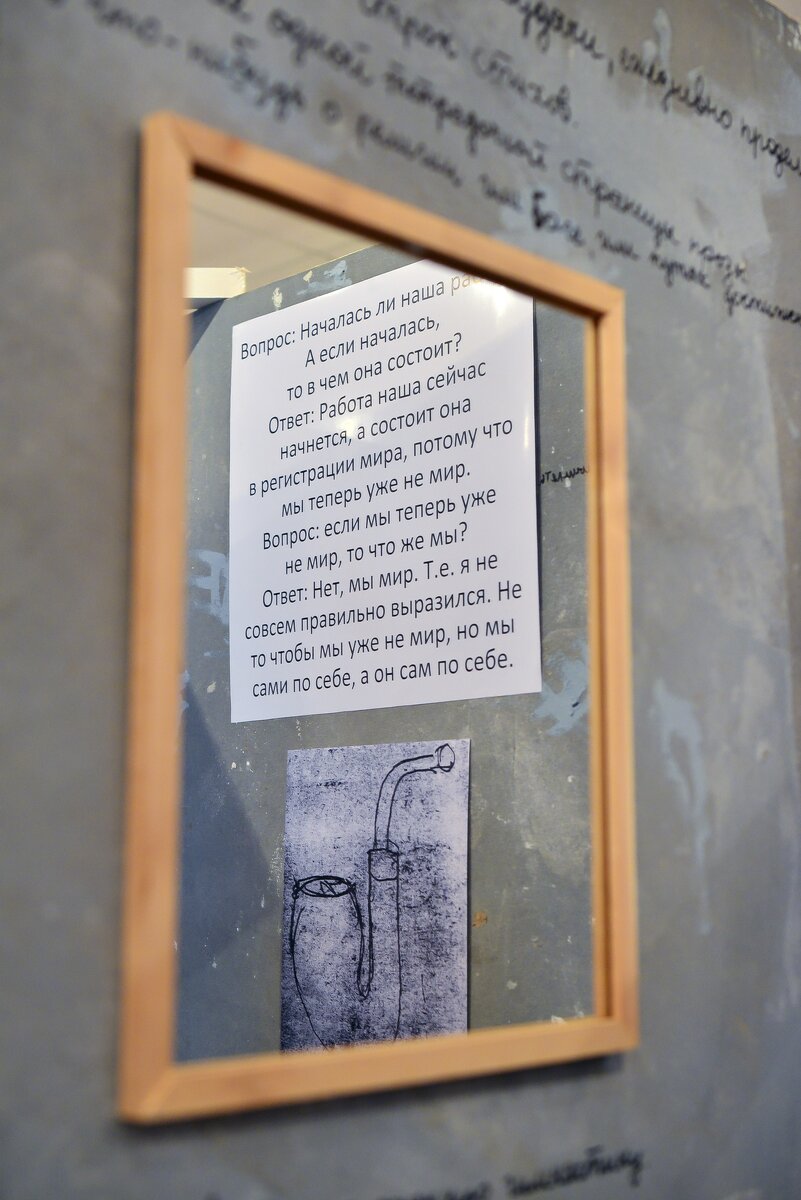 ежедневно
строк стихов.
одной тетрадочной страницы
что-нибудь о религии, или Боге, или
Вопрос: Началась ли наша
А если началась,
то в чем она состоит?
Ответ: Работа наша сейчас
начнется, а состоит она
в регистрации мира, потому что
мы теперь уже не мир.
Вопрос: если мы теперь уже
не мир, то что же мы?
Ответ: Нет, мы мир. Т.е. я не
совсем правильно выразился. Не
то чтобы мы уже не мир, но мы
сами по себе, а он сам по себе.
гимнастику